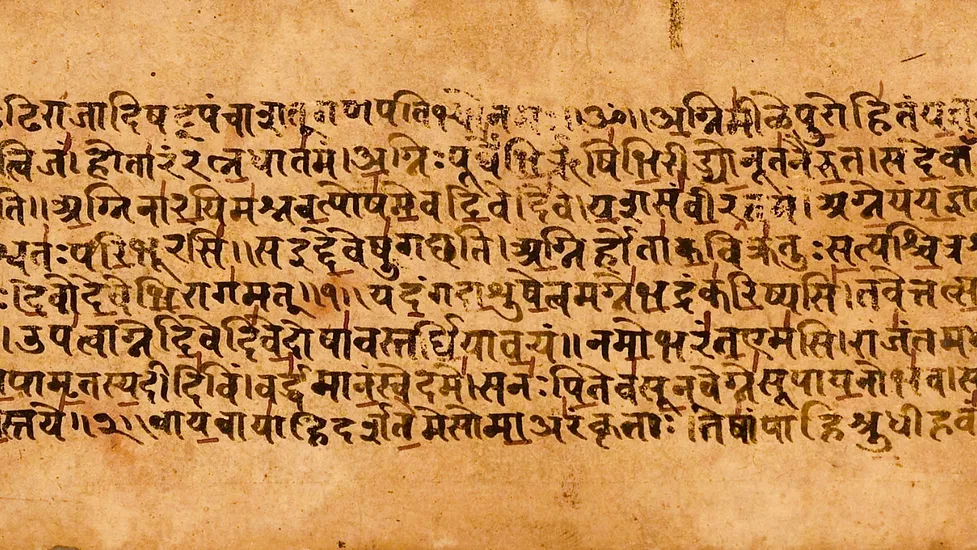 राजादिषट्पंचाशत् गणपतिभ्यो नमः ॥ ॐ ॥ अग्निमीळेपुरोहितं
त्विजं । होतारंरत्नधातमं । अग्निःपूर्वेभिर्ऋषिभिरीड्योनूतनैरुत । सदेवाँ
ति ॥ अग्निनारयिमश्नवत्पोषमेवदिवेदिवे । यशसंवीरवत्तमं । अग्नेयंयज्ञ
श्वतःपरिभूरसि । सइद्देवेषुगछति । अग्निर्होताकविक्रतुःसत्यश्चित्र
देवोदेवेभिरागमत् ॥ १ ॥ यदंगदाशुषेत्वमग्नेभद्रंकरिष्यसि । तवेत्तत्स
। उपत्वाग्नेदिवेदिवेदोषावस्तर्धियावयं ॥ नमोभरंतएमसि । राजंतम
पामृतस्यदीदिविं । वर्द्धमानंस्वेदमे । सनःपितेवसूनवेग्नेसूपायनोभव ।
स्तये ॥ २ ॥ वायवायाहिदर्शतेमेसोमाअरंकृताः । तेषांपाहिश्रुधीहवं